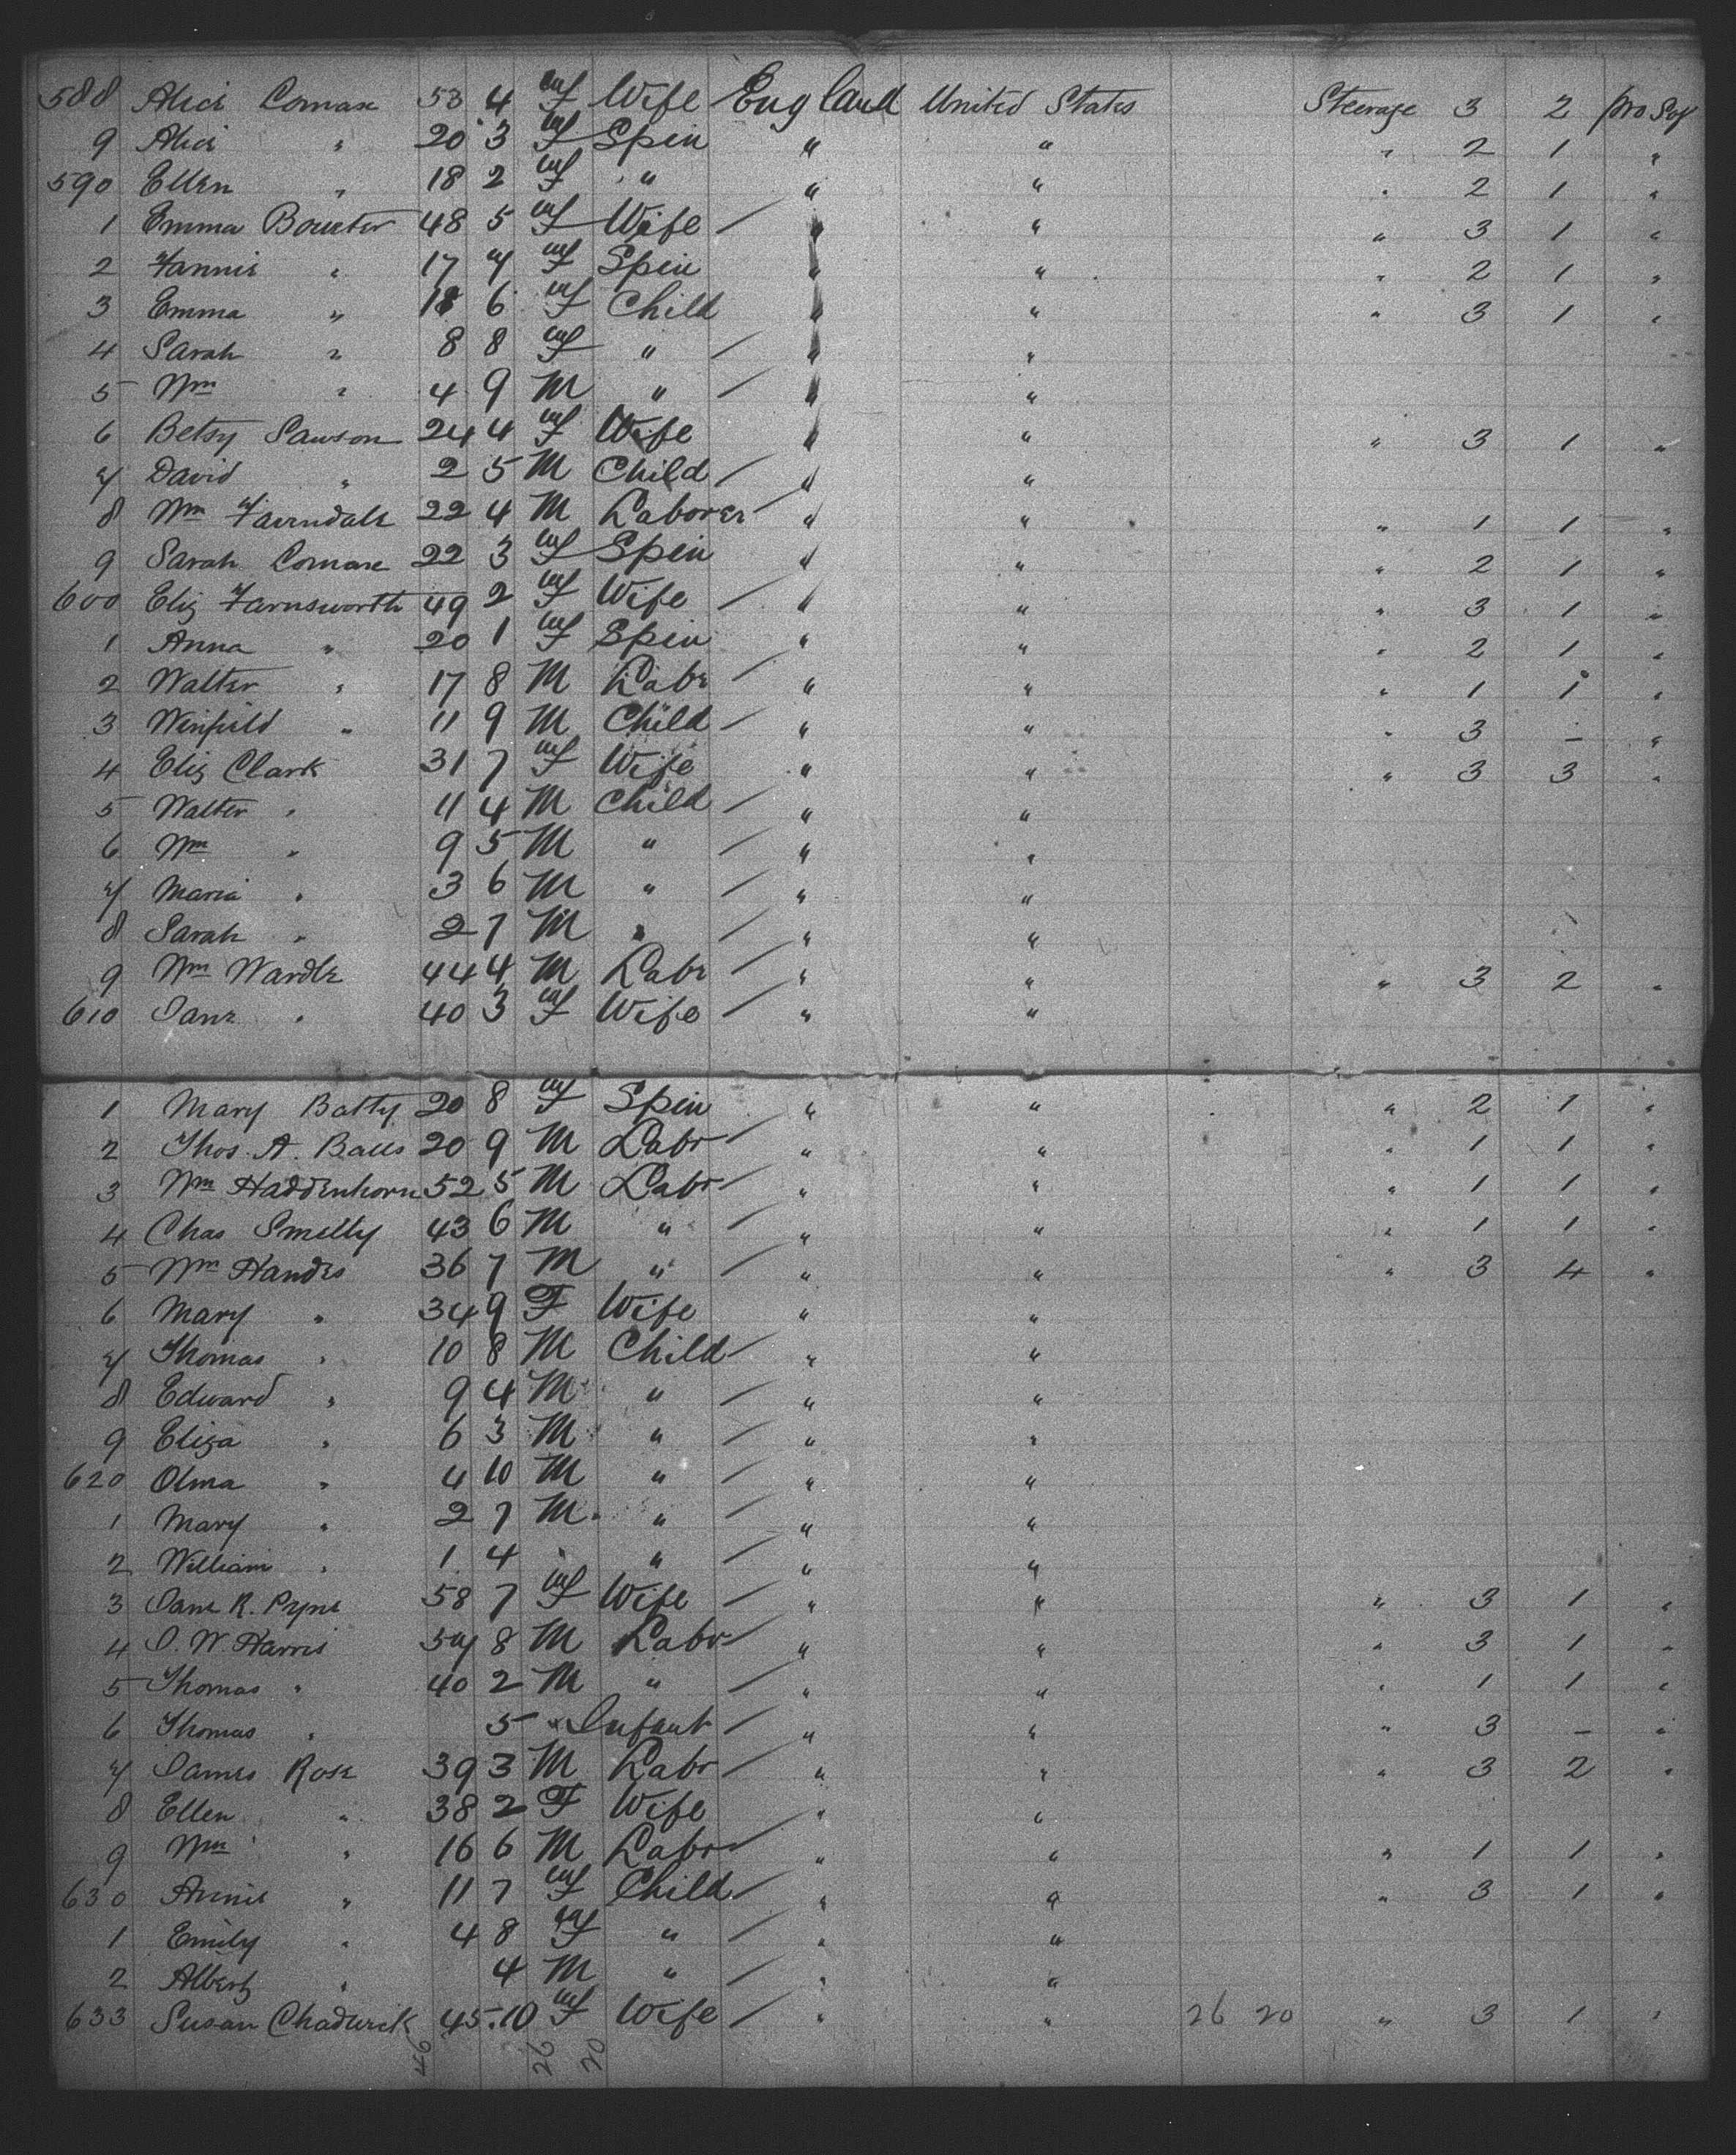 588 Alice Comase 53 4 F Wife England United States Steerage 3 2 pro Soj
9 Alice " 20 3 F Spin " " " 2 1 "
590 Ellen " 18 2 F " " " " 2 1 "
1 Emma Bourter 48 5 F Wife " " " 3 1 "
2 Fannie " 17 7 F Spin " " " 2 1 "
3 Emma " 18 6 F Child " " " 3 1 "
4 Sarah " 8 8 F " " "
5 Wm " 4 9 M " " "
6 Betsy Sawson 24 4 F Wife " " " 3 1 "
7 David " 2 5 M Child " "
8 Wm Favendale 22 4 M Laborer " " " 1 1 "
9 Sarah Comase 22 3 F Spin " " " 2 1 "
600 Eliz Farnsworth 49 2 F Wife " " " 3 1 "
1 Anna " 20 1 F Spin " " " 2 1 "
2 Walter " 17 8 M Labr " " " 1 1 "
3 Winfield " 11 9 M Child " " " 3 - "
4 Eliz Clark 31 7 F Wife " " " 3 3 "
5 Walter " 11 4 M Child " "
6 Wm " 9 5 M " " "
7 Maria " 3 6 M " " "
8 Sarah " 2 7 M " " "
9 Wm Wardle 44 4 M Labr " " " 3 2 "
610 Jane " 40 3 F Wife " "
1 Mary Batty 20 8 F Spin " " " 2 1 "
2 Thos. A. Balls 20 9 M Labr " " " 1 1 "
3 Wm Haddenhorn 52 5 M Labr " " " 1 1 "
4 Chas Smelly 43 6 M " " " " 1 1 "
5 Wm Handes 36 7 M " " " " 3 4 "
6 Mary " 34 9 F Wife " "
7 Thomas " 10 8 M Child " "
8 Edward " 9 4 M " " "
9 Eliza " 6 3 M " " "
620 Olma " 4 10 M " " "
1 Mary " 2 7 M " " "
2 William " 1 4 " " " "
3 Jane R. Pyne 58 7 F Wife " " " 3 1 "
4 J. W Harris 57 8 M Labr " " " 3 1 "
5 Thomas " 40 2 M " " " " 1 1 "
6 Thomas " 5 " Infant " " " 3 - "
7 James Rose 39 3 M Labr " " " 3 2 "
8 Ellen " 38 2 F Wife " "
9 Wm " 16 6 M Labr " " " 1 1 "
630 Annie " 11 7 F Child " " " 3 1 "
1 Emily " 4 8 F " " "
2 Albert " 4 M " " "
633 Susan Chadwick 45 10 F Wife " " 26 20 " 3 1 "
46 26 20